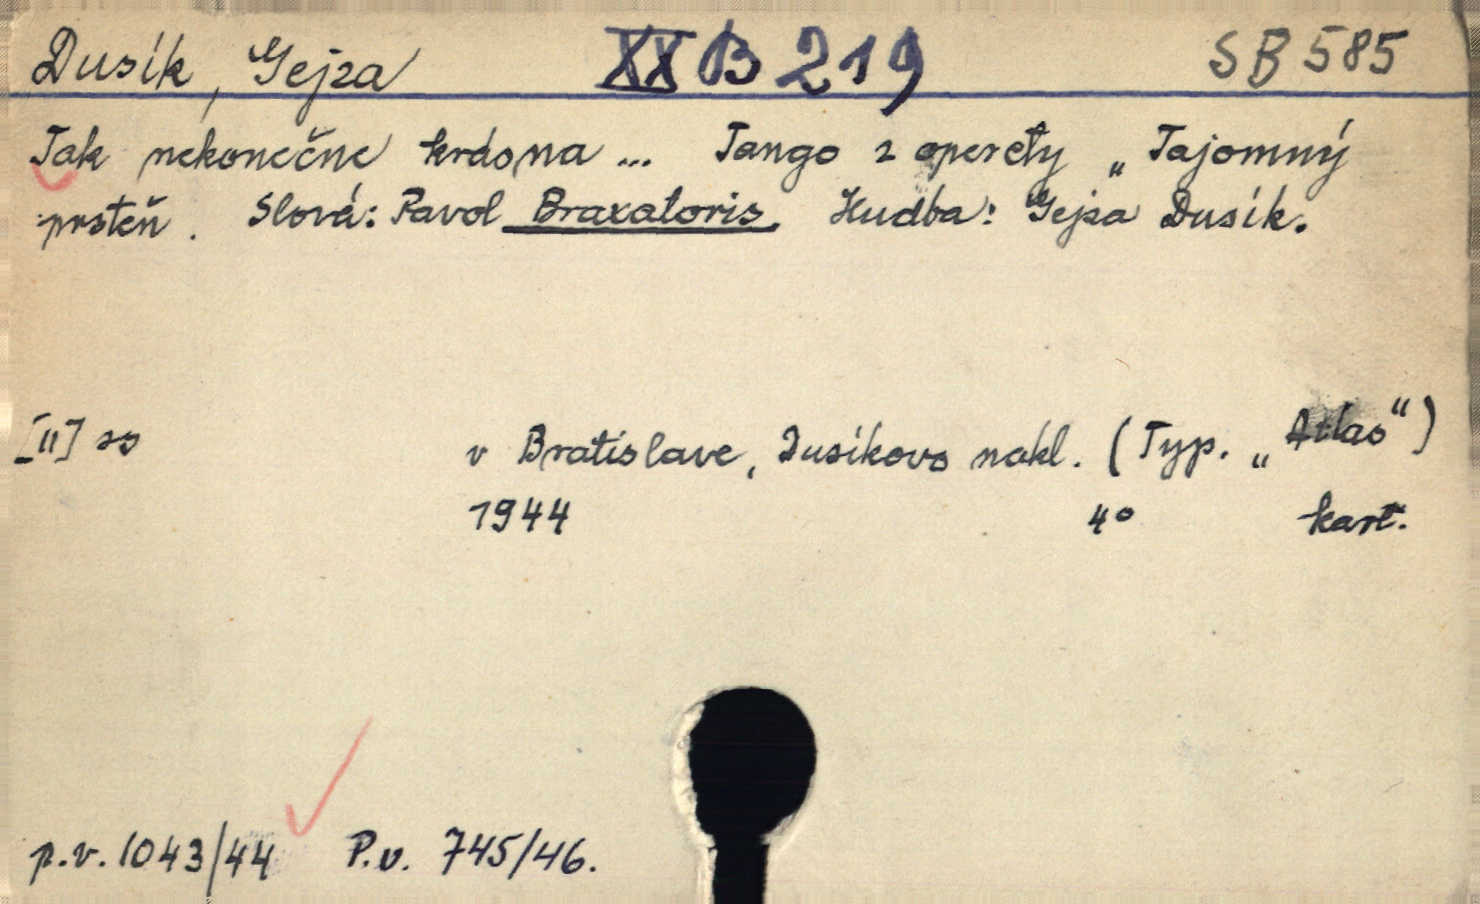 Dusík, Gejza XX B 219 SB 585
Tak nekonečne krásna ... Tango z operety „Tajomný
prsteň. Slová: Pavol Braxatoris. Hudba: Gejza Dusík.
[II] ss v Bratislave, Dusíkovo nakl. (Typ. „Atlas“)
1944 4° kart.
p.v. 1043/44 P.v. 745/46.